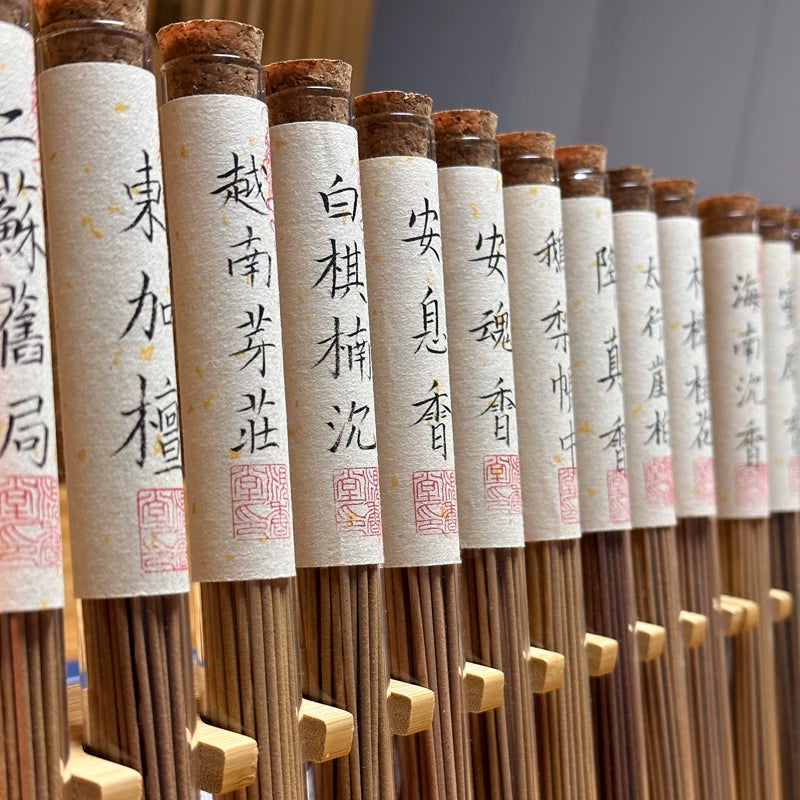 蘇舊局
東加檀
越南芽莊
白棋楠沉
安息香
安魂香
鵝梨帳中
真香
太行崖柏
木樨桂花
海南沉香